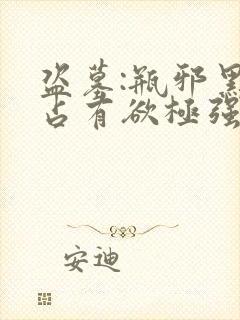 盗墓:瓶邪黑
占有欲極强
安迪